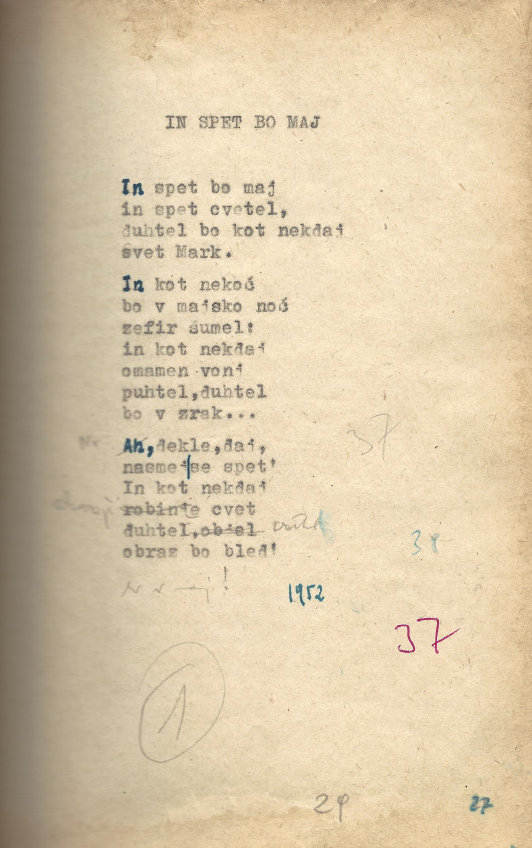 IN SPET BO MAJ
In spet bo maj
in spet cvetel,
duhtel bo kot nekdaj
svet Mark.
In kot nekoč
bo v majsko noč
zefir šumel:
in kot nekdaj
omamen vonj
puhtel, duhtel
bo v zrak...
37
Ah, dekle, daj,
nasmej se spet!
In kot nekdaj
robinie cvet
duhtel, objel
obraz bo bled!
38
!
1952
37
1
29
27